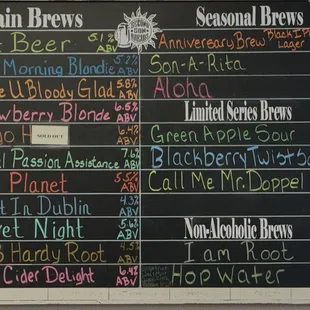 ain Brews
Beer 5.1% ABV
Morning Blondie 5.2% ABV
e U Bloody Glad 5.8% ABV
wberry Blonde 6.5% ABV
go H SOLD OUT 6.4% ABV
l Passion Assistance 7.6% ABV
Planet 5.5% ABV
t In Dublin 4.3% ABV
et Night 5.6% ABV
Hardy Root 4.5% ABV
Cider Delight 6.4% ABV
Seasonal Brews
Anniversary Brew Black IP Lager
Son-A-Rita
Aloha
Limited Series Brews
Green Apple Sour
Blackberry Twist So
Call Me Mr. Doppel
Non-Alcoholic Brews
I am Root
Hop Water